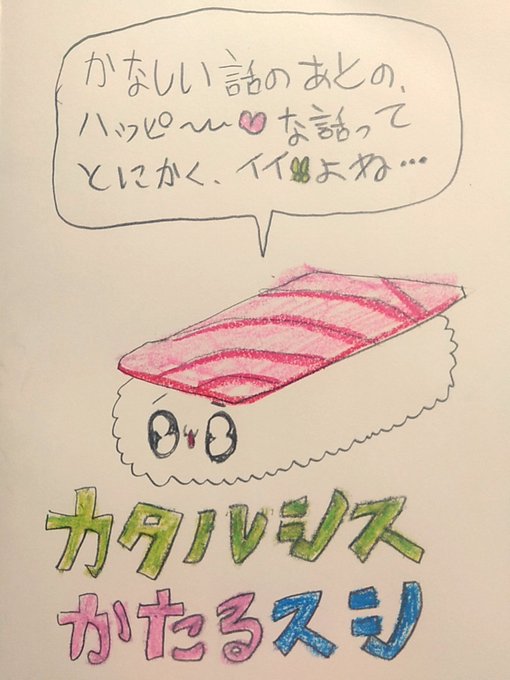 かなしい話のあとの、
ハッピ〜〜な話って
とにかく、イイよね…
カタルシス
かたるスシ